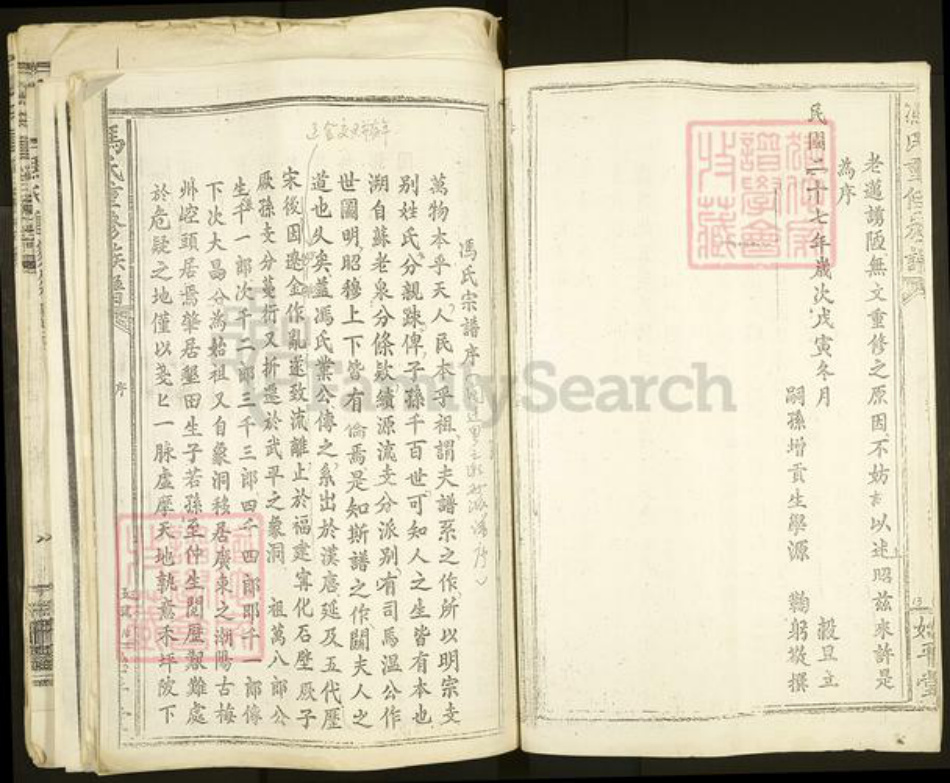 老邁譾陋無文重修之原因不妨以述昭茲來許是
為序
民國二十七年歲次戊寅冬月
嗣孫增貢生學源
穀旦立
鞠躬撰
始平堂
馮氏宗譜序
萬物本乎天人民本乎祖謂夫譜系之作所以明宗支
別姓氏分親踈俾子孫千百世可知人之生皆有本也
溯自蘇老泉分條欵績源流支分派別有司馬溫公作
世圖明昭穆上下皆有倫焉是知斯譜之作關夫人之
道也久矣蓋馮氏業公傳之系出於漢唐延及五代歷
宋後因遼金作亂遂致流離止於福建寧化石壁厥子
厥孫支分蔓衍又折遷於武平之象洞 祖萬八郎公
生千一郎次千二郎三千三郎四千四郎即千一郎像
下次大昌分為始祖又自象洞移居廣東之潮陽古梅
州崆頭居焉肇居墾田生子若孫至仲生閱歷艱難處
於危疑之地僅以戔匕一脉盧摩天地執意禾坪陂下
馮氏重修族譜
序
FamilySearch